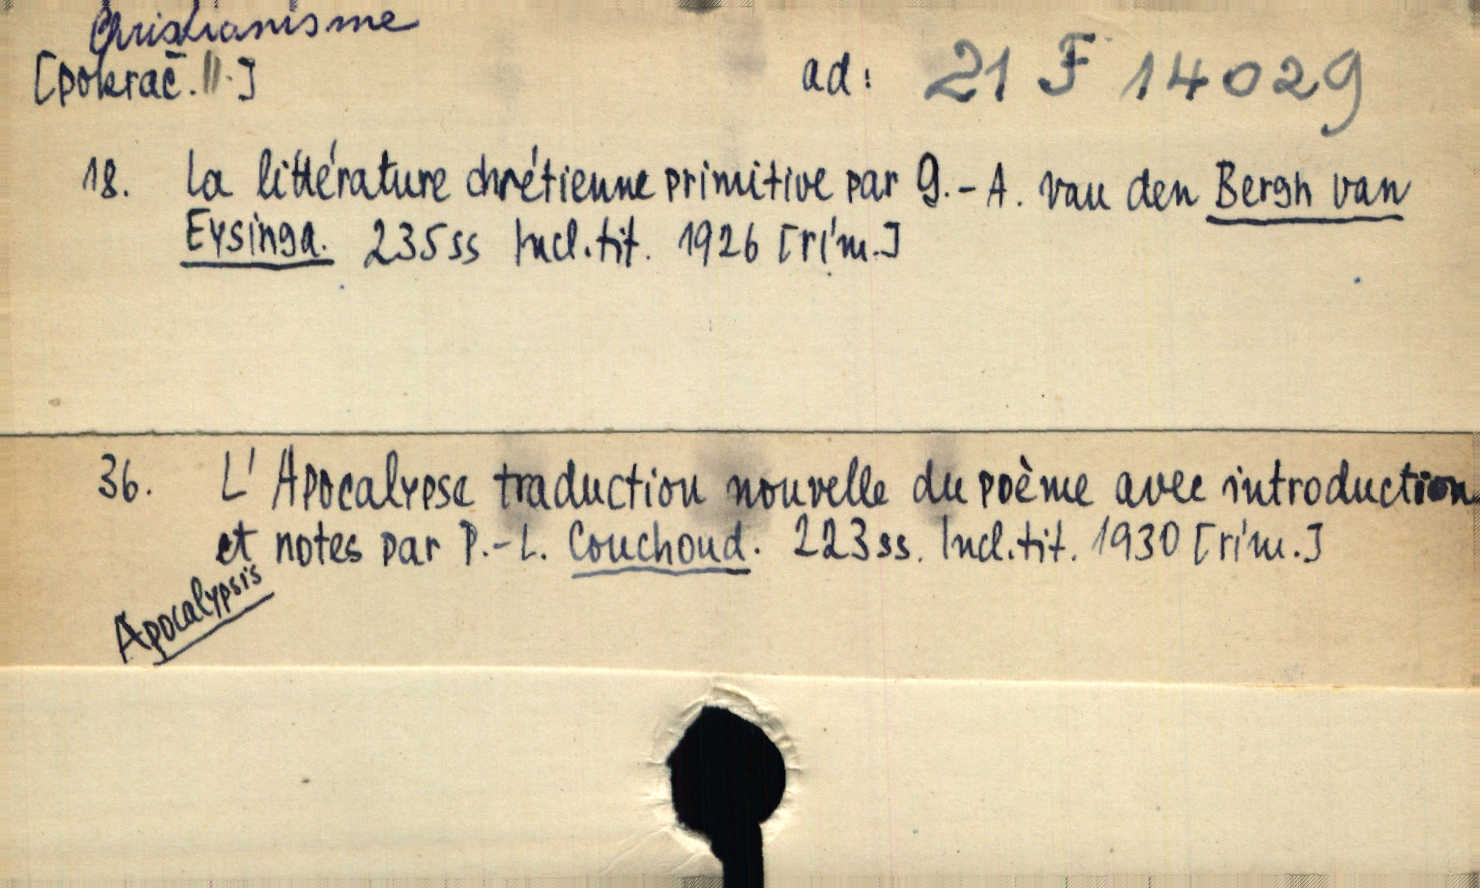 Christianisme
[pokrač. II.] ad: 21 F 14029
18. La littérature chrétienne primitive par G.-A. van den Bergh van
Eysinga. 235ss Incl. tit. 1926 [rím.]
36. L'Apocalypse traduction nouvelle du poème avec introduction
et notes par P.-L. Couchoud. 223ss. Incl. tit. 1930 [rím.]
Apocalypsis